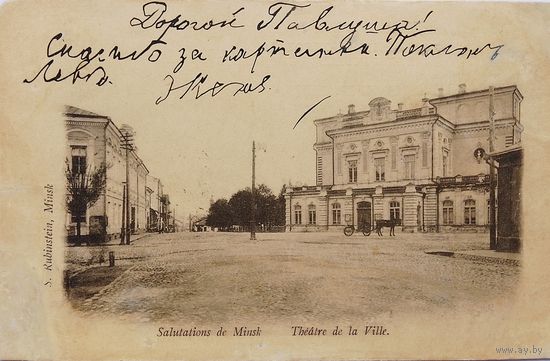 Дорогой Павлуша!
Спасибо за картинки. Поклонъ
Левѣ.
Женя.
S. Rubinstein, Minsk
Salutations de Minsk Théâtre de la Ville.
www.ay.by